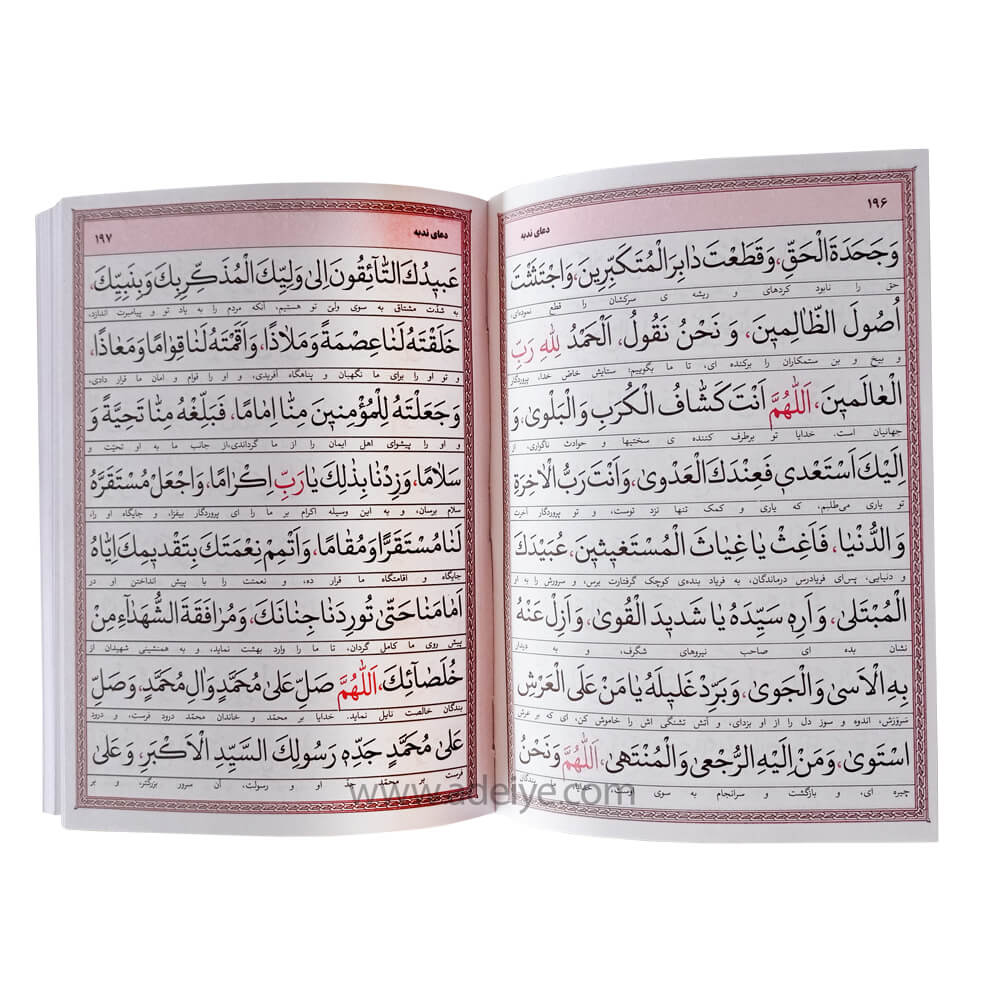 ۱۹۶
دعای ندبه
وَجَحَدَةَ الْحَقِّ، وَقَطَعْتَ دٰابِرَ الْمُتَكَبِّرينَ، وَاجْتَثَثْتَ
حق را نابود کرده‌ای و ریشه ی سرکشان را قطع نموده‌ای،
اُصُولَ الظّٰالِمينَ، وَ نَحْنُ نَقُولُ، اَلْحَمْدُ لِلّٰهِ رَبِّ
و بیخ و بن ستمکاران را برکنده ای، تا ما بگوییم: ستایش خاص خدا، پروردگار
الْعٰالَمينَ، اَللّٰهُمَّ اَنْتَ كَشّٰافُ الْكُرَبِ وَالْبَلْوىٰ، وَ
جهانیان است. خدایا تو برطرف کننده ی سختیها و حوادث ناگواری، از
اِلَيْكَ اَسْتَعْدي فَعِنْدَكَ الْعَدْوىٰ، وَاَنْتَ رَبُّ الْاٰخِرَةِ
تو یاری می‌طلبم، که یاری و کمک تنها نزد توست، و تو پروردگار آخرت
وَالدُّنْيٰا، فَاَغِثْ يٰا غِيٰاثَ الْمُسْتَغيثينَ، عُبَيْدَكَ
و دنیایی، پس‌ای فریادرس درماندگان، به فریاد بنده‌ی کوچک گرفتارت برس، و سرورش را به او
الْمُبْتَلىٰ، وَاَرِهِ سَيِّدَهُ يٰا شَديدَ الْقُوىٰ، وَاَزِلْ عَنْهُ
نشان بده ای صاحب نیروهای شگرف، و به دیدار
بِهِ الْاَسىٰ وَالْجَوىٰ، وَبَرِّدْ غَليلَهُ يٰا مَنْ عَلَى الْعَرْشِ
سَرورَش، اندوه و سوز دل را از او بزدای، و آتش تشنگی اش را خاموش کن، ای که بر عرش
اسْتَوىٰ، وَمَنْ اِلَيْهِ الرُّجْعىٰ وَالْمُنْتَهىٰ، اَللّٰهُمَّ وَنَحْنُ
چیره ای، و بازگشت و سرانجام به سوی اوست، خدایا بندگان
۱۹۷
دعای ندبه
عَبيدُكَ التّٰآئِقُونَ اِلىٰ وَلِيِّكَ الْمُذَكِّرِ بِكَ وَبِنَبِيِّكَ،
به شدّت مشتاق به سوی ولیّ تو هستیم، آنکه مردم را به یاد تو و پیامبرت اندازد،
خَلَقْتَهُ لَنٰا عِصْمَةً وَمَلاٰذًا، وَاَقَمْتَهُ لَنٰا قِوٰامًا وَمَعٰاذًا،
و تو او را برای ما نگهبان و پناهگاه آفریدی، و او را قوام و امان ما قرار دادی،
وَجَعَلْتَهُ لِلْمُؤْمِنينَ مِنّٰا اِمٰامًا، فَبَلِّغْهُ مِنّٰا تَحِيَّةً وَ
و او را پیشوای اهل ایمان را از ما گرداندی،از جانب ما به او تحیّت و
سَلاٰمًا، وَزِدْنٰا بِذٰلِكَ يٰا رَبِّ اِكْرٰامًا، وَاجْعَلْ مُسْتَقَرَّهُ
سلام برسان، و به این وسیله اکرام بر ما را ای پروردگار بیفزا، و جایگاه او را،
لَنٰا مُسْتَقَرًّا وَمُقٰامًا، وَاَتْمِمْ نِعْمَتَكَ بِتَقْديمِكَ اِيّٰاهُ
جایگاه و اقامتگاه ما قرار ده، و نعمتت را با پیش انداختن او در
اَمٰامَنٰا حَتّىٰ تُورِدَنٰا جِنٰانَكَ، وَمُرٰافَقَةَ الشُّهَدٰآءِ مِنْ
پیش روی ما کامل گردان، تا ما را وارد بهشت نماید، و به همنشینی شهیدان از
خُلَصٰآئِكَ، اَللّٰهُمَّ صَلِّ عَلىٰ مُحَمَّدٍ وَاٰلِ مُحَمَّدٍ، وَصَلِّ
بندگان خالصت نایل نماید. خدایا بر محمّد و خاندان محمّد درود فرست، و درود
عَلىٰ مُحَمَّدٍ جَدِّهِ رَسُولِكَ السَّيِّدِ الْاَكْبَرِ، وَعَلىٰ
فرست بر محمّد جدّ او و رسولت، آن سرور بزرگتر، و بر
www.adeiye.com